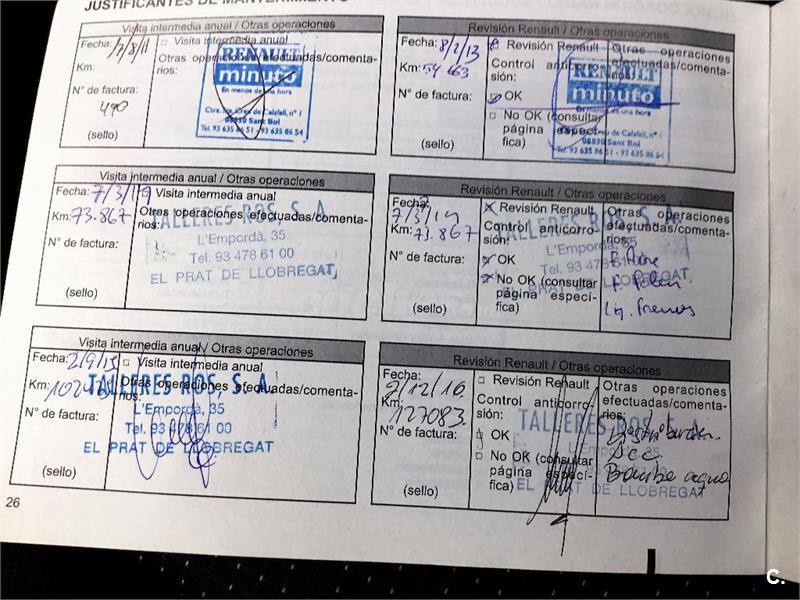 JUSTIFICANTES DE MANTENIMIENTO
Visita intermedia anual / Otras operaciones
Fecha: 1/8/11 □ Visita intermedia anual
Km: Otras operaciones efectuadas/comenta-
rios:
N° de factura:
490
(sello)
RENAULT
minuto
En menos de una hora
08830 Sant Boi
Tel. 93 635 86 51 - 93 635 86 54
Revisión Renault / Otras operaciones
Fecha: 8/2/13 Revisión Renault
Km: 54 663 Control anticorro-
sión:
N° de factura: □ OK
□ No OK (consultar
página especí-
fica)
(sello)
Otras operaciones
efectuadas/comenta-
rios:
RENAULT
minuto
En menos de una hora
08830 Sant Boi
Tel. 93 635 86 51 - 93 635 86 54
Visita intermedia anual / Otras operaciones
Fecha: 7/3/14 Visita intermedia anual
Km: 73.867 Otras operaciones efectuadas/comenta-
rios:
N° de factura:
(sello)
TALLERES ROS, S. A.
L'Empordà, 35
Tel. 93 478 61 00
EL PRAT DE LLOBREGAT
Revisión Renault / Otras operaciones
Fecha: 7/3/14 x Revisión Renault
Km: 73.867 Control anticorro-
sión:
N° de factura: OK
No OK (consultar
página especí-
fica)
(sello)
Otras operaciones
efectuadas/comenta-
rios:
F. Aire
F. Polen
Liq. Frenos
TALLERES ROS, S. A.
L'Empordà, 35
Tel. 93 478 61 00
EL PRAT DE LLOBREGAT
Visita intermedia anual / Otras operaciones
Fecha: 2/9/15 □ Visita intermedia anual
Km: Otras operaciones efectuadas/comenta-
rios:
N° de factura:
(sello)
TALLERES ROS, S. A.
L'Empordà, 35
Tel. 93 478 61 00
EL PRAT DE LLOBREGAT
Revisión Renault / Otras operaciones
Fecha: 2/12/16 □ Revisión Renault
Km: 127083. Control anticorro-
sión:
N° de factura: □ OK
□ No OK (consultar
página especí-
fica)
(sello)
Otras operaciones
efectuadas/comenta-
rios:
Acc.
Bomba agua
TALLERES ROS, S. A.
L'Empordà, 35
EL PRAT DE LLOBREGAT
26
C.